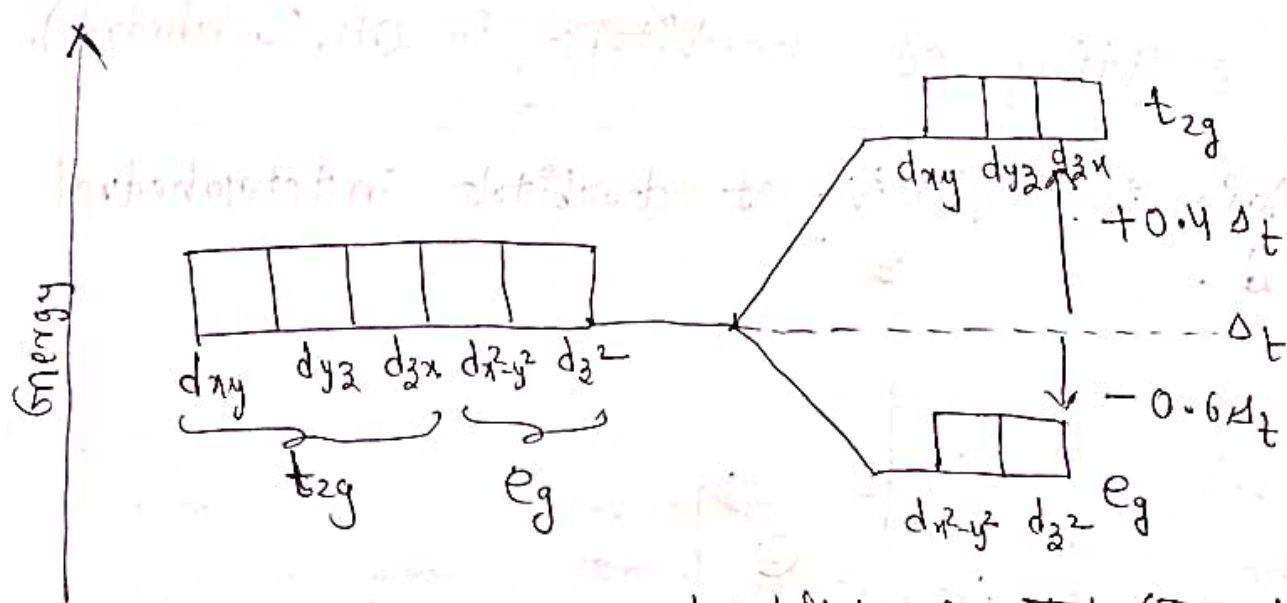 Energy
dxy dyz dzx dx²-y² dz²
t2g eg
t2g
dxy dyz dzx
+0.4 Δt
Δt
-0.6Δt
dx²-y² dz² eg